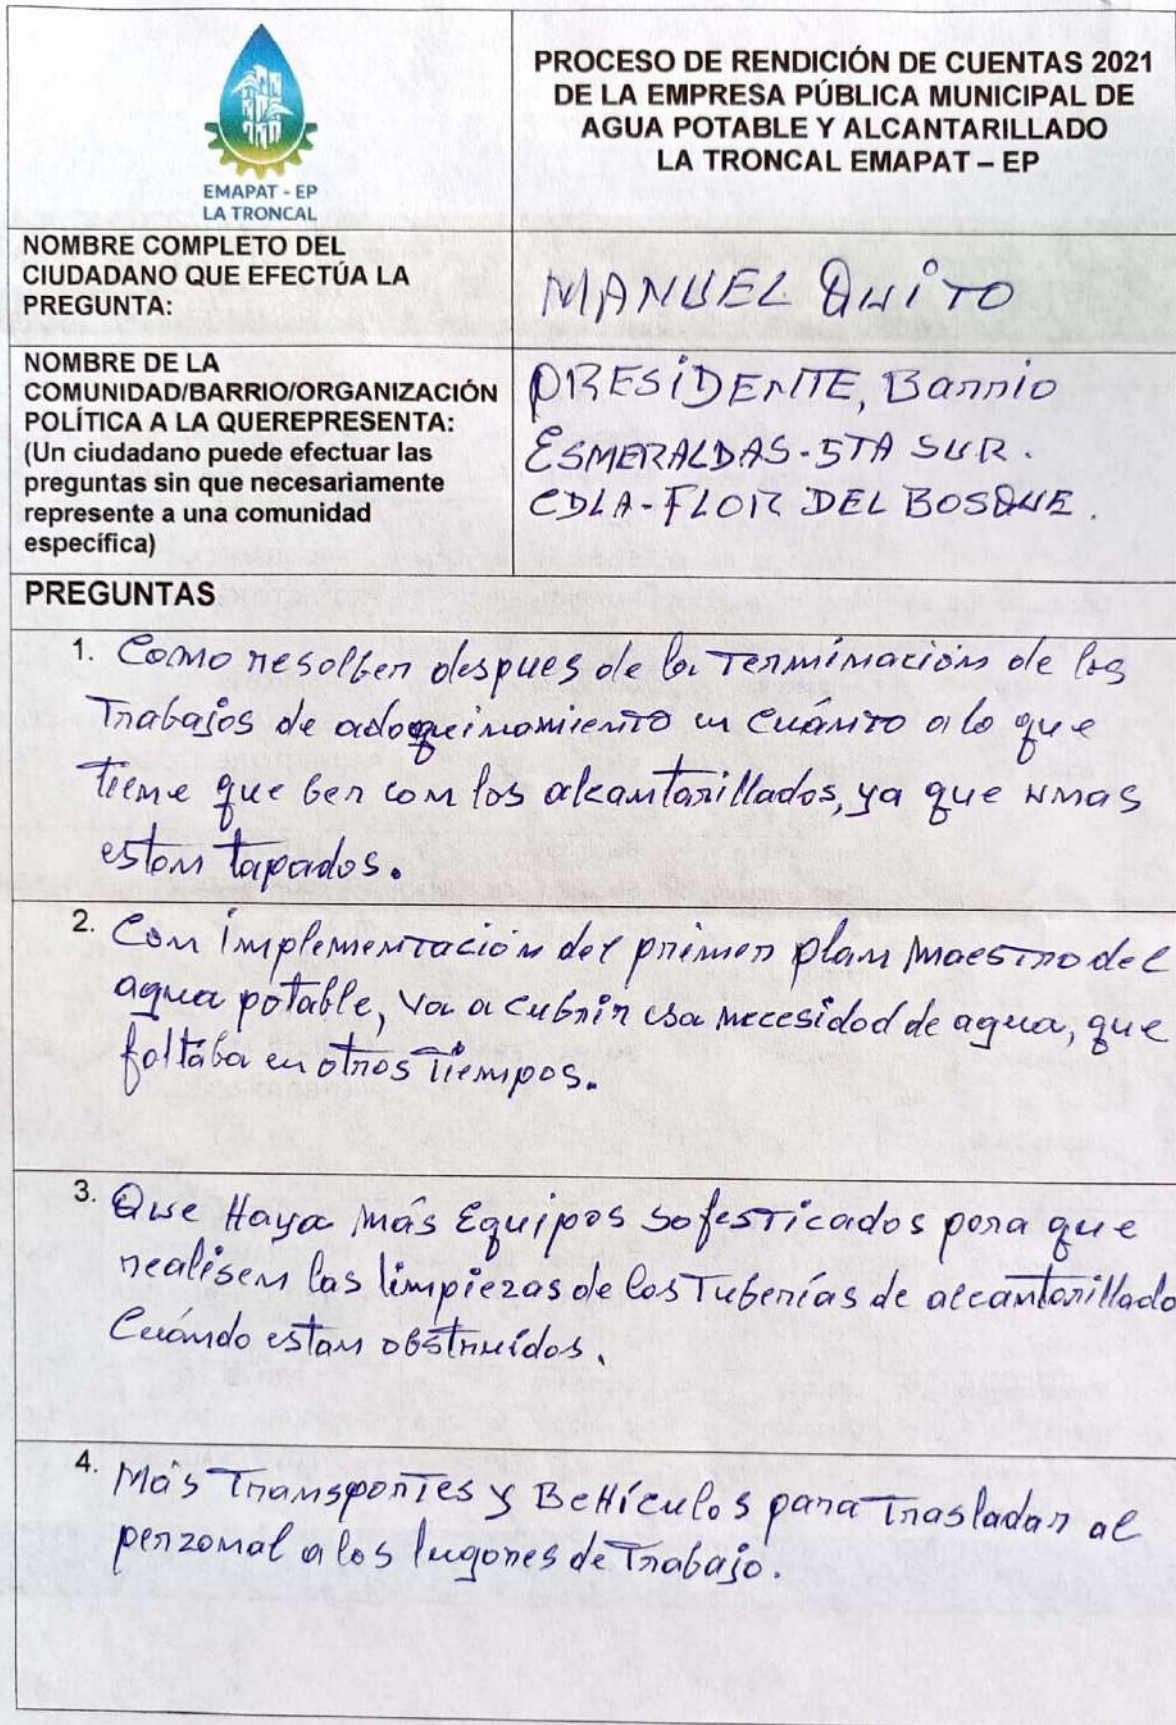 EMAPAT - EP
LA TRONCAL
PROCESO DE RENDICIÓN DE CUENTAS 2021
DE LA EMPRESA PÚBLICA MUNICIPAL DE
AGUA POTABLE Y ALCANTARILLADO
LA TRONCAL EMAPAT – EP
NOMBRE COMPLETO DEL
CIUDADANO QUE EFECTÚA LA
PREGUNTA:
MANUEL QUiTO
NOMBRE DE LA
COMUNIDAD/BARRIO/ORGANIZACIÓN
POLÍTICA A LA QUEREPRESENTA:
(Un ciudadano puede efectuar las
preguntas sin que necesariamente
represente a una comunidad
específica)
PRESiDENTE, Barrio
ESMERALDAS-5TA SUR.
CDLA-FLOR DEL BOSQUE.
PREGUNTAS
1. Como resolber despues de la Terminación de los
Trabajos de adoquinamiento en Cuánto a lo que
tiene que ber con los alcantarillados, ya que unas
estan tapados.
2. Con implementación del primer plan maestro del
agua potable, va a cubrir esa necesidad de agua, que
faltaba en otros Tiempos.
3. Que Haya más Equipos sofesticados para que
realisen las limpiezas de las Tuberías de alcantarillado
Cuándo estan obstruídos.
4. Más Transportes y BeHículos para Trasladar al
perzonal a los lugares de Trabajo.